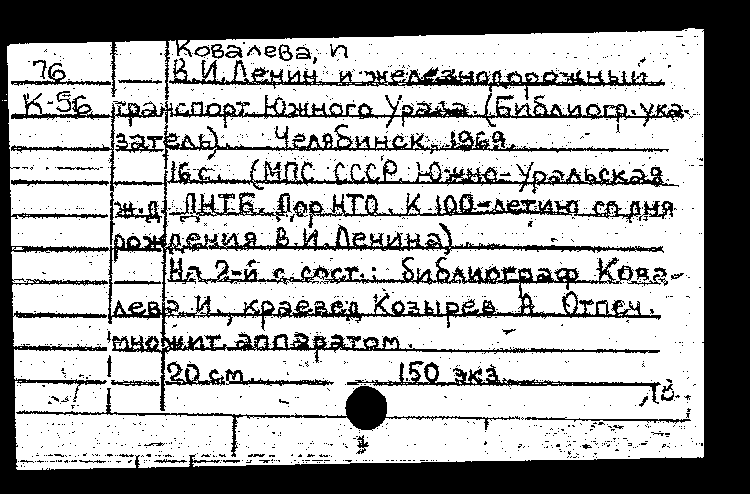 Ковалева, П
76 В.И.Ленин и железнодорожный
К-56 транспорт Южного Урала (Библиогр.ука-
затель). Челябинск, 1969.
16 с. (МПС СССР. Южно-Уральская
ж.д. ДНТБ. Дор НТО. К 100-летию со дня
рождения В.И.Ленина)
На 2-й с сост.: библиограф Кова-
лева И., краевед Козырев А. Отпеч.
множит. аппаратом.
20 см 150 экз.